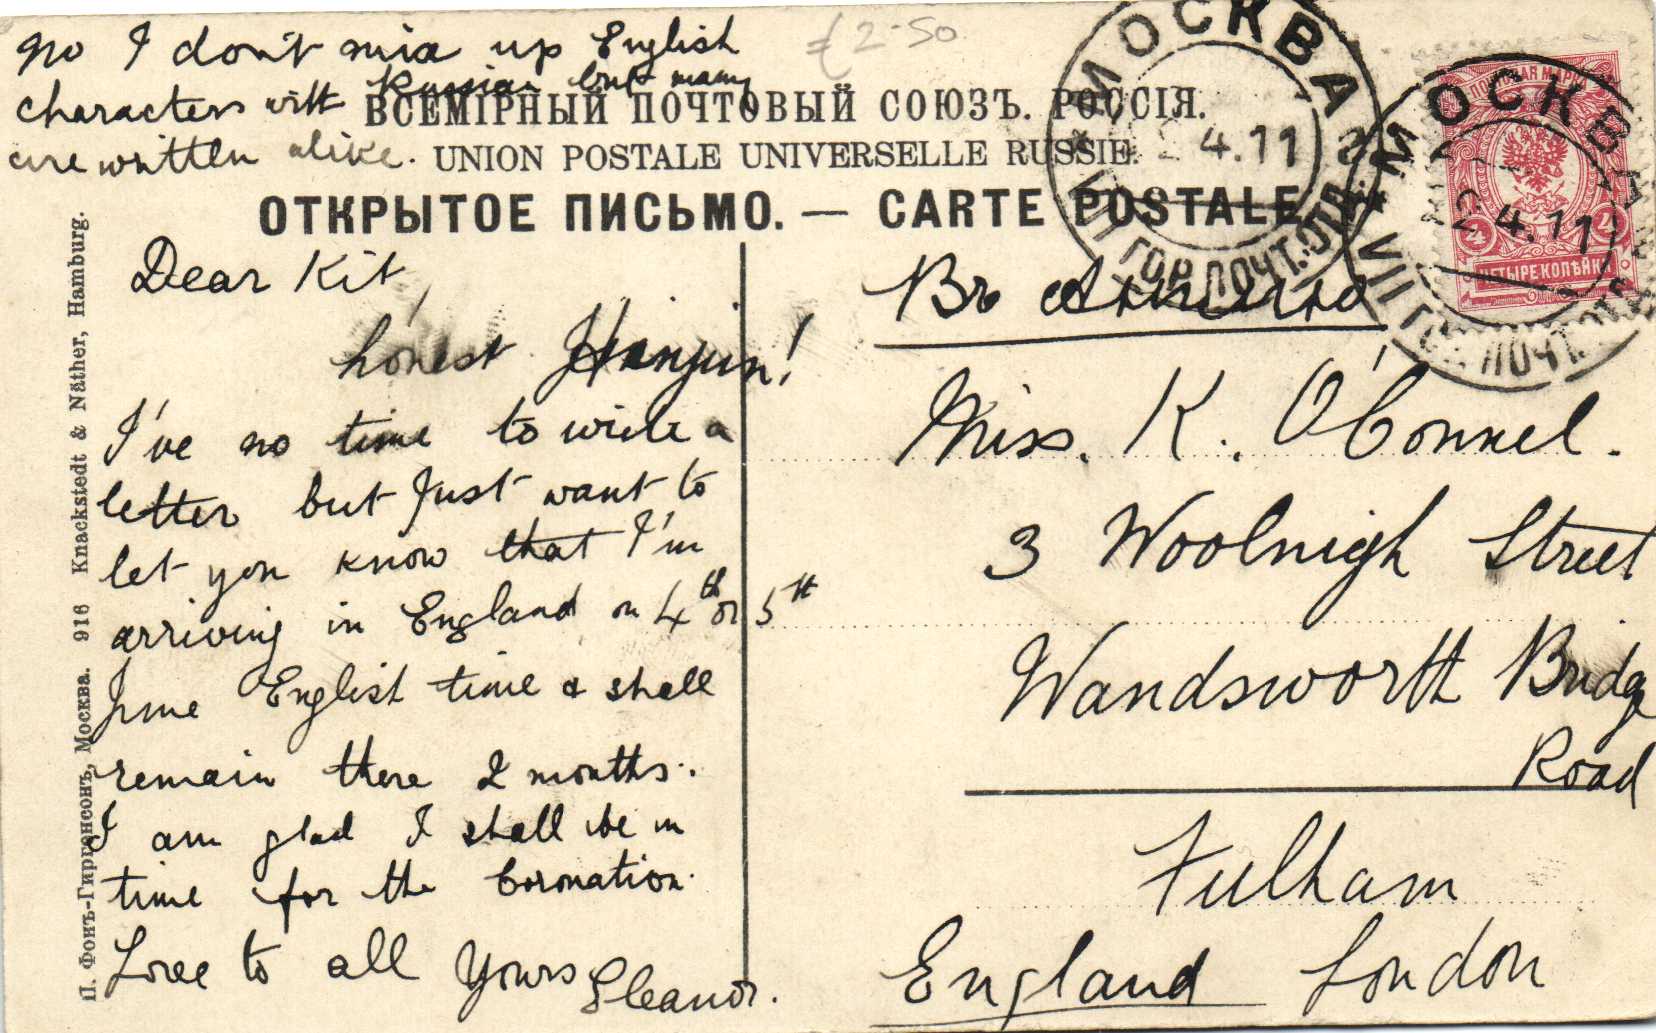 No I don't mix up English
characters with Russian but many
are written alike.
£2-50
ВСЕМІРНЫЙ ПОЧТОВЫЙ СОЮЗЪ. РОССІЯ.
UNION POSTALE UNIVERSELLE RUSSIE.
ОТКРЫТОЕ ПИСЬМО. — CARTE POSTALE
МОСКВА
4.11
VII ГОР. ПОЧТ. ОТД.
ПОЧТОВАЯ МАРКА
4 4
ЧЕТЫРЕ КОПѢЙКИ
МОСКВА
2 4.11
VII ГОР. ПОЧТ. ОТД.
Dear Kit,
honest
I've no time to write a
letter but just want to
let you know that I'm
arriving in England on 4th or 5th
June English time & shall
remain there 2 months.
I am glad I shall be in
time for the Coronation.
Love to all Yours Eleanor.
Въ Англію
Miss. K. O'Connel.
3 Woolneigh Street
Wandsworth Bridge
Road
Fulham
England London
П. Фонъ-Гиргенсонъ, Москва. 916 Knackstedt & Näther, Hamburg.